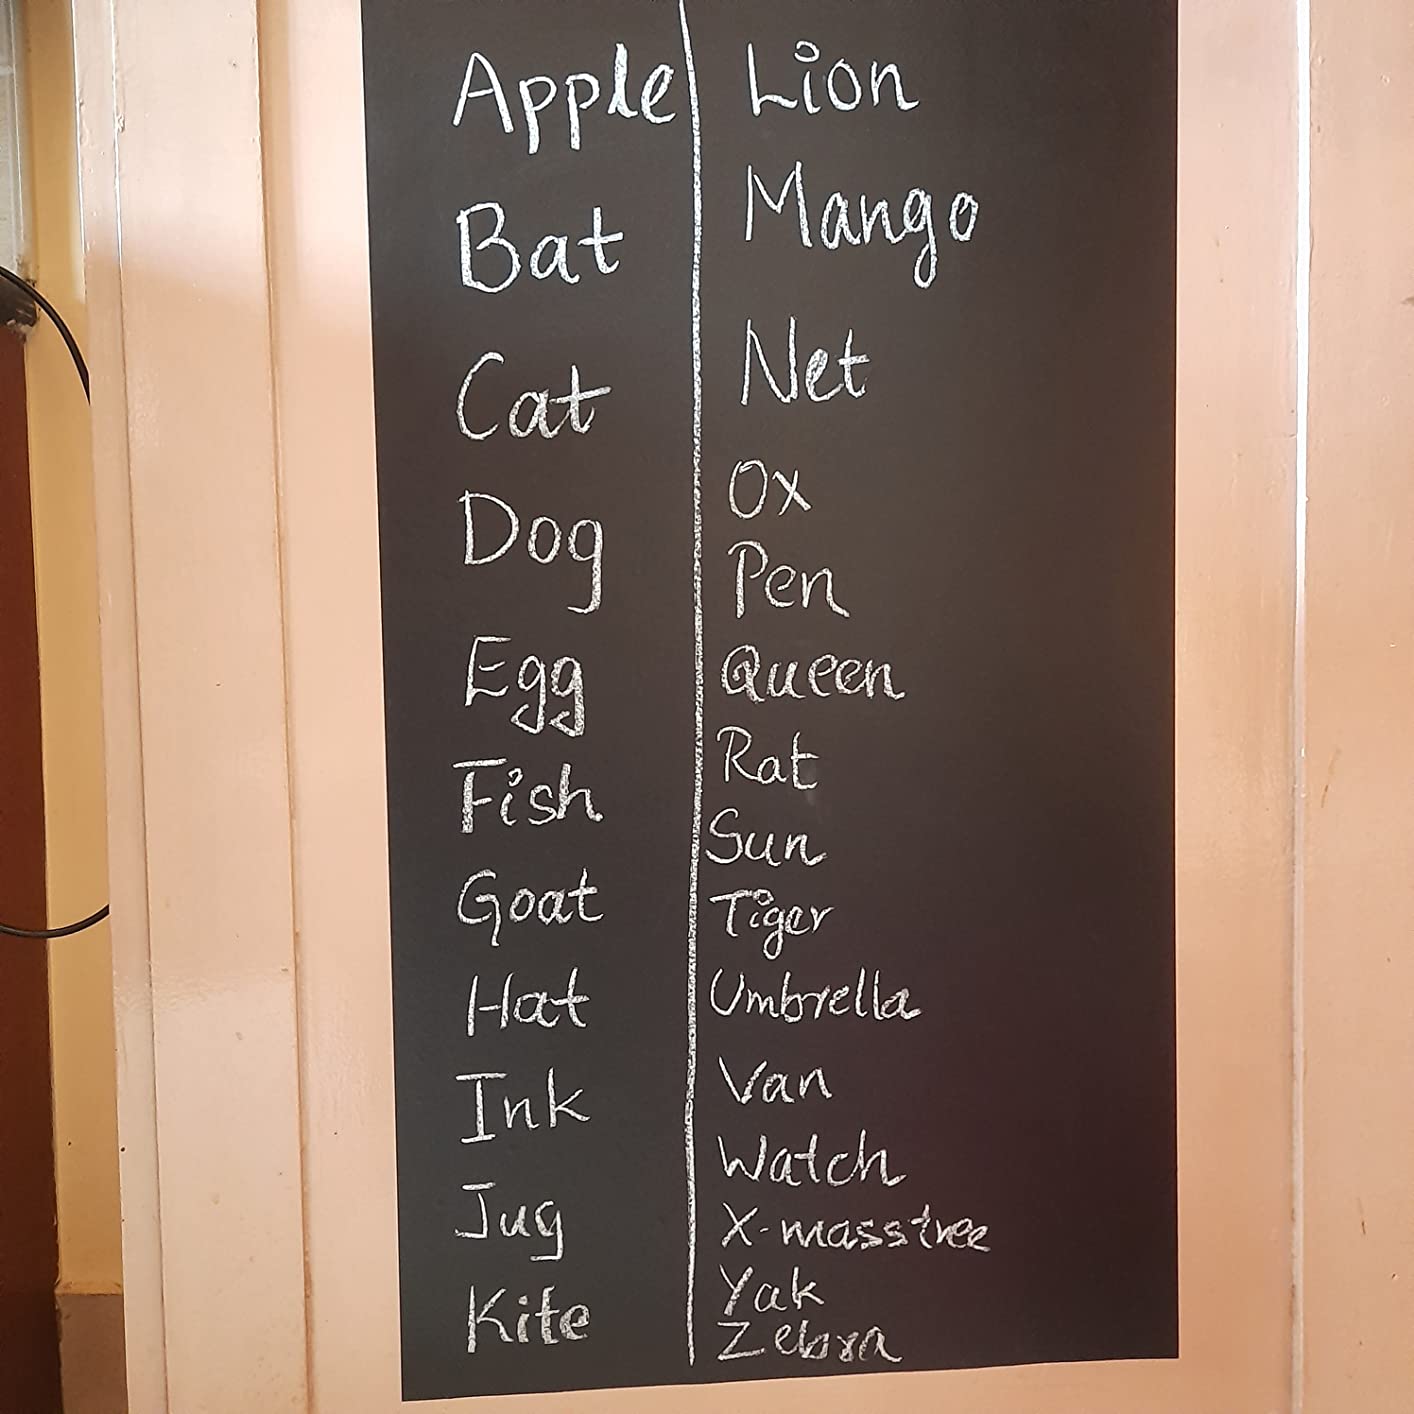 Apple
Bat
Cat
Dog
Egg
Fish
Goat
Hat
Ink
Jug
Kite
Lion
Mango
Net
Ox
Pen
Queen
Rat
Sun
Tiger
Umbrella
Van
Watch
X-masstree
Yak
Zebra